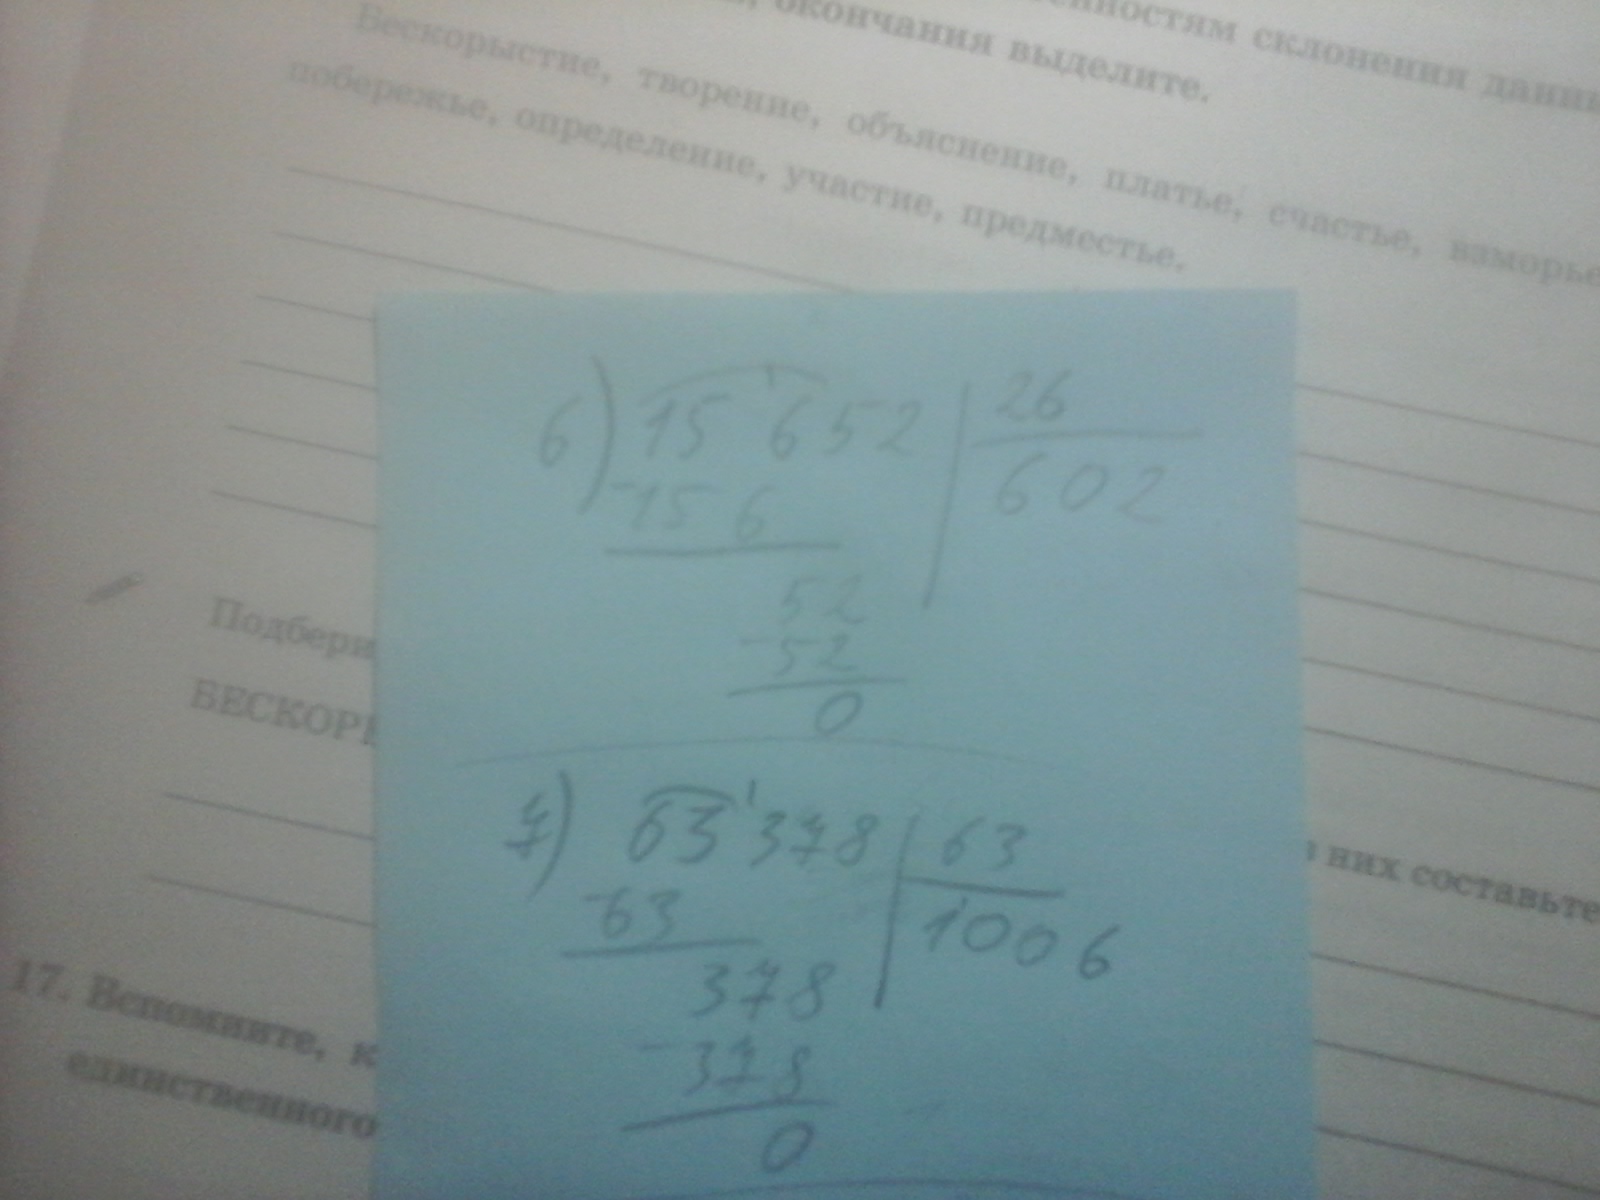 енностям склонения данны
окончания выделите.
Бескорыстие, творение, объяснение, платье, счастье, взморье
побережье, определение, участие, предместье.
6) 15'652 | 26
-156 602
52
-52
0
Подбери
БЕСКОРЫ
7) 63'378 | 63
-63 1006
378
-378
0
них составьте
17. Вспомните, к
единственного